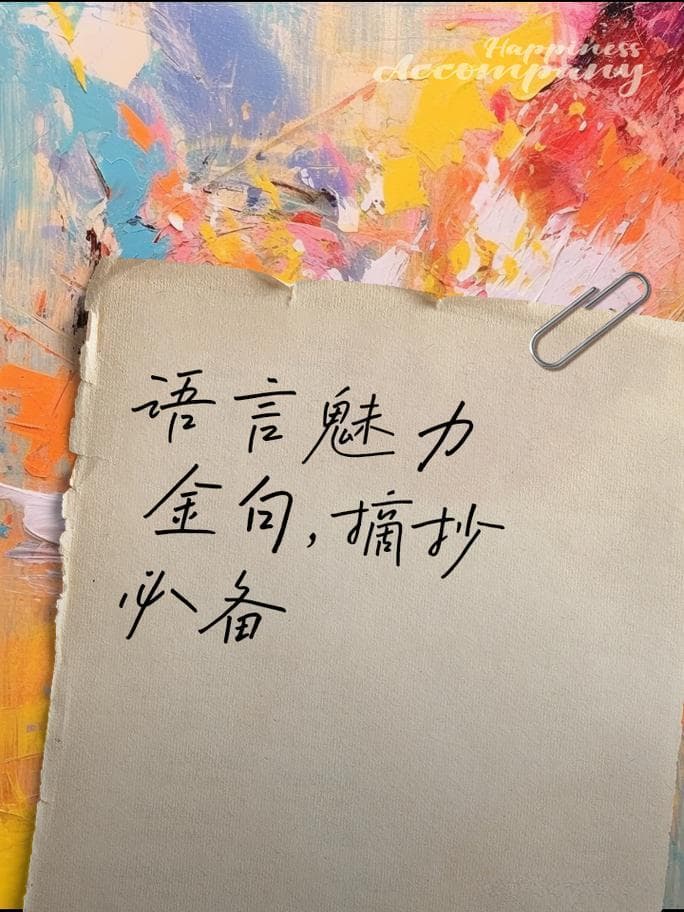 Happiness
Accompany
语言魅力
金句,摘抄
必备